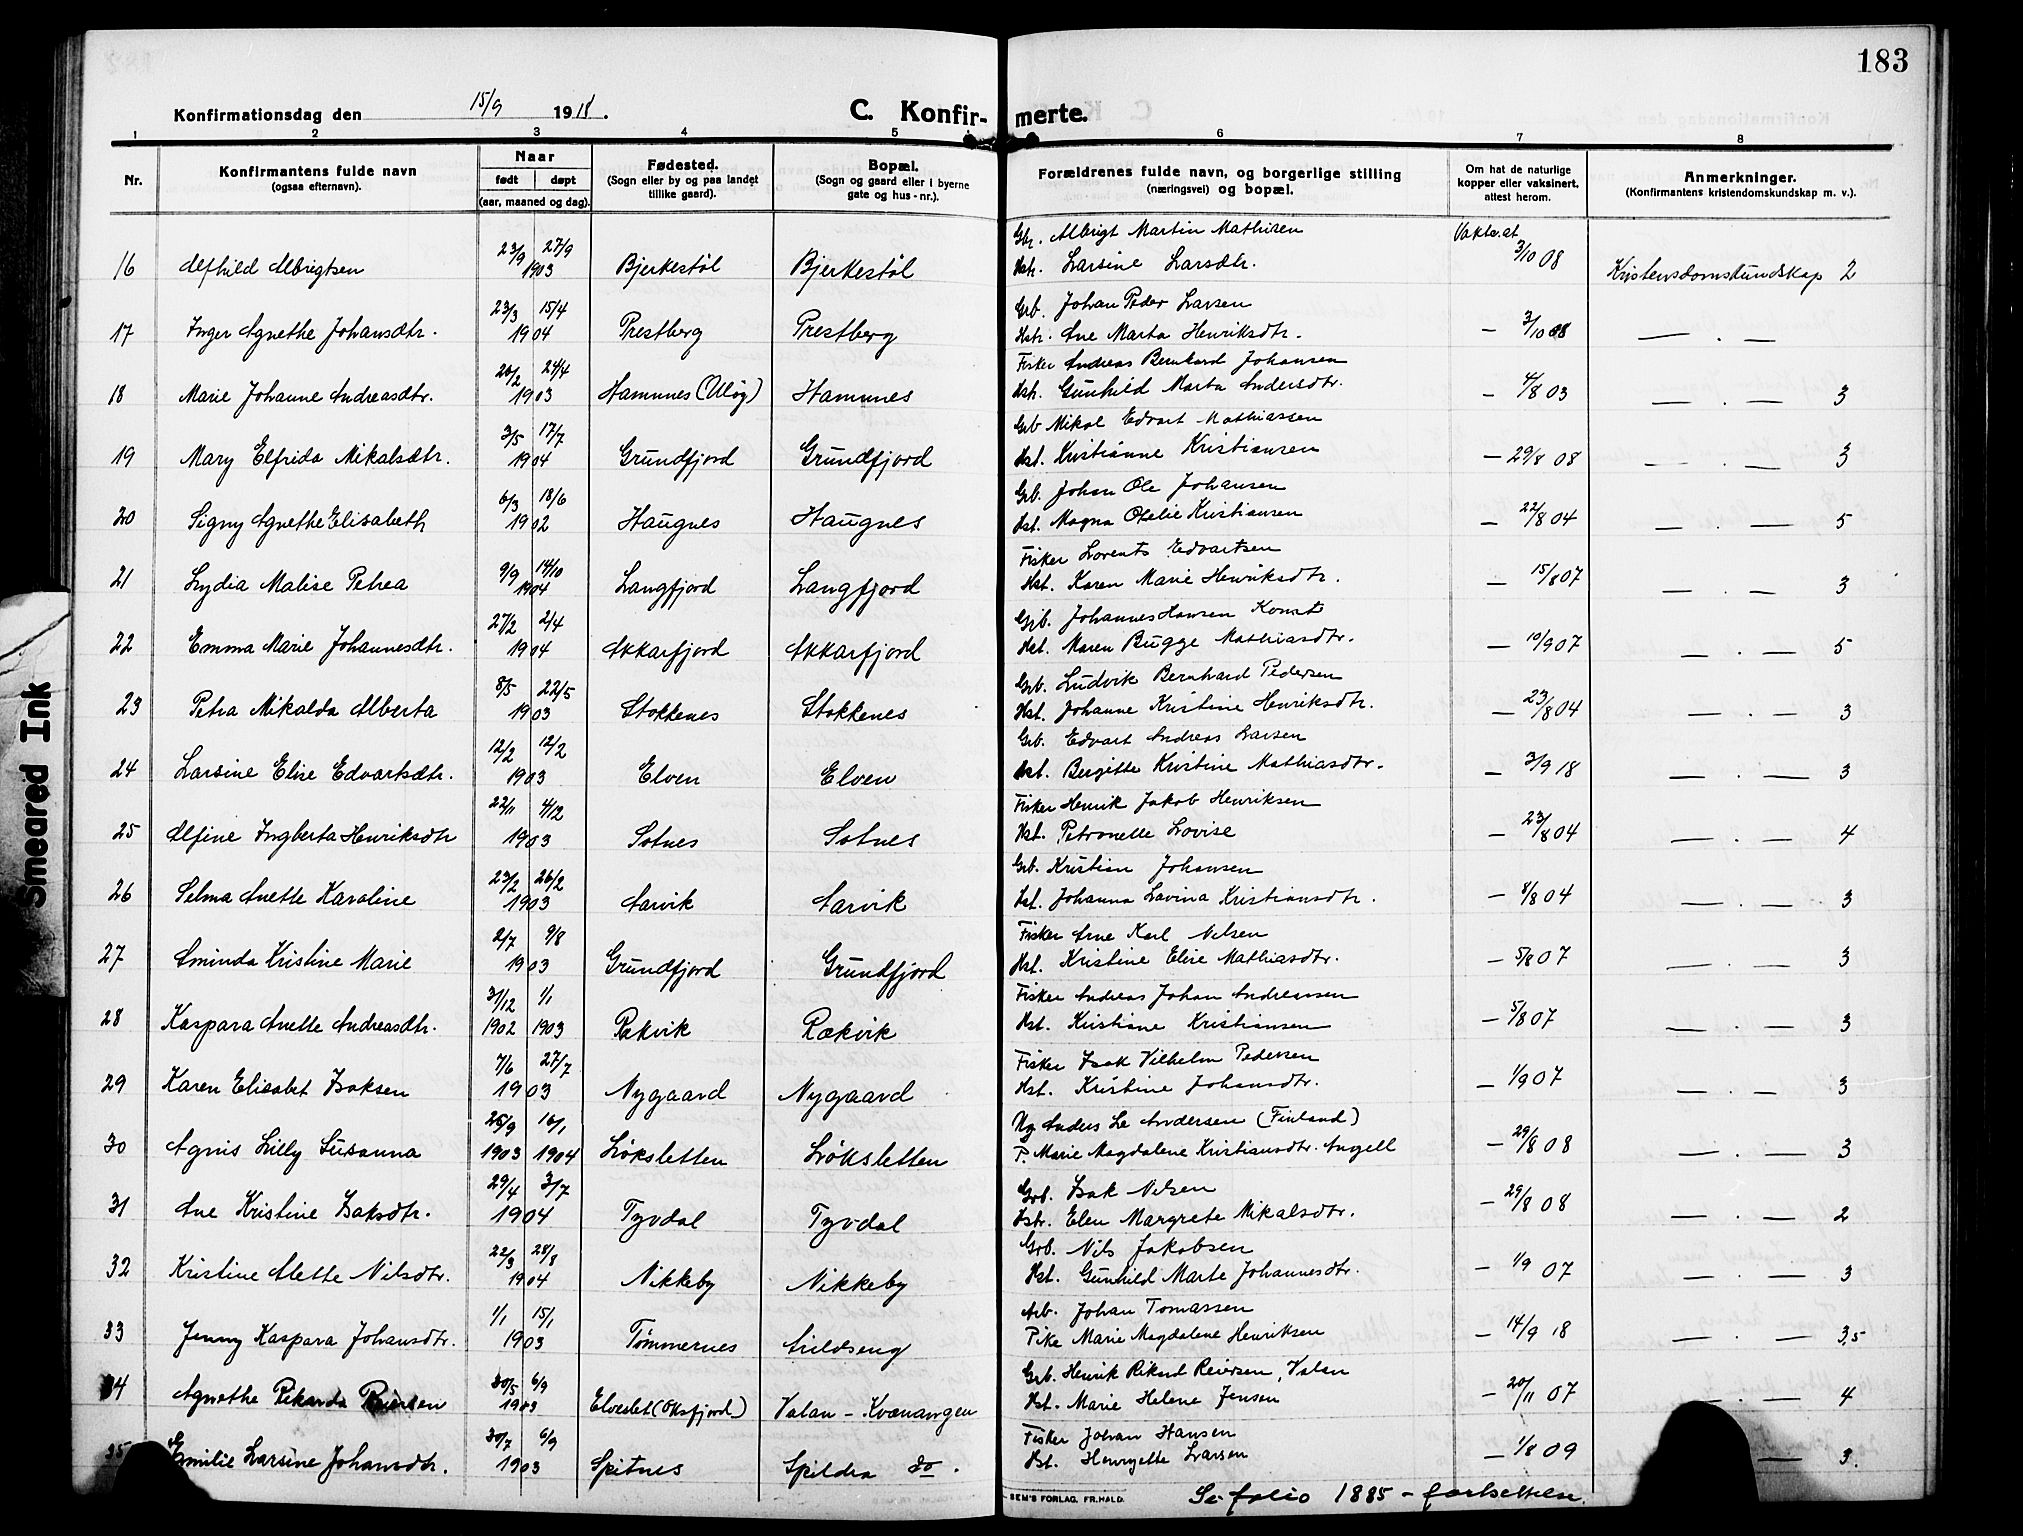 183
Konfirmationsdag den 15/9 1918.
C. Konfirmerte.
1 2 3 4 5 6 7 8
Nr.
Konfirmantens fulde navn
(ogsaa efternavn).
Naar
født døpt
(aar, maaned og dag).
Fødested.
(Sogn eller by og paa landet
tillike gaard).
Bopæl.
(Sogn og gaard eller i byerne
gate og hus-nr.).
Forældrenes fulde navn, og borgerlige stilling
(næringsvei) og bopæl.
Om hat de naturlige
kopper eller vaksinert,
attest herom.
Anmerkninger.
(Konfirmantens kristendomskundskap m. v.).
Gbr. Albrigt Martin Mathisen Vaks.at
16 Alfhild Albrigtsen 23/9 27/9 1903 Bjerkestøl Bjerkestøl Hstr. Larsine Larsdtr. 3/10 08 Kristensdomskundskap 2
Grb. Johan Peder Larsen
17 Inger Agnethe Johansdtr. 23/3 15/4 1904 Prestberg Prestberg Hstr. Ane Marta Henriksdtr. — 3/10 08 — . —
Fisker Andreas Bernhard Johansen
18 Marie Johanne Andreasdtr. 20/2 24/4 1903 Hamnes (Uløy) Hamnes Hst. Gunhild Marta Andersdtr. — 4/8 03 — . — 3
Grb Mikal Edvart Mathiassen
19 Mary Elfrida Mikalsdtr. 3/5 17/7 1904 Grundfjord Grundfjord Hst. Kristianne Kristiansen — 29/8 08 — . — 3
Grb. Johan Ole Johansen
20 Signy Agnethe Elisabeth 6/3 18/6 1902 Haugnes Haugnes Hst. Magna Otelie Kristiansen — 22/8 04 — . — 5
Fisker Lorents Edvartsen
21 Lydia Malise Petrea 9/9 14/10 1904 Langfjord Langfjord Hst. Karen Marie Henriksdtr. — 15/8 07 — . — 3
Grb. Johannes Hansen Konst
22 Emma Marie Johannesdtr. 27/2 2/4 1904 Akkarfjord Akkarfjord Hst. Maren Bugge Mathiasdtr. — 10/9 07 — . — 5
Grb. Ludvik Bernhard Pedersen
23 Petra Mikalda Alberta 8/5 22/5 1903 Stokkenes Stokkenes Hst. Johanne Kristine Henriksdtr. — 23/8 04 — . — 3
Grb. Edvart Andreas Larsen
24 Larsine Elise Edvartsdtr. 12/2 12/2 1903 Elven Elven Hst. Bergitte Kristine Mathiasdtr. — 3/9 18 — . — 3
Fisker Henrik Jakob Henriksen
25 Alfine Ingberta Henriksdtr 22/11 4/12 1903 Sotnes Sotnes Hst. Petronelle Lovise — 23/8 04 — . — 4
Grb. Kristian Johansen
26 Selma Anette Karoline 23/2 26/2 1903 Aarvik Aarvik Hst. Johanna Lavina Kristiansdtr. — 8/8 04 — . — 3
Fisker Arne Karl Nilsen
27 Aminda Kristine Marie 2/7 9/8 1903 Grundfjord Grundfjord Hst. Kristine Elise Mathiasdtr. — 5/8 07 — . — 3
Fisker Andreas Johan Andreassen
28 Kaspara Anette Andreasdtr. 31/12 1/1 1902 1903 Rækvik Rækvik Hst. Kristiane Kristiansen — 5/8 07 — . — 3
Fisker Isak Vilhelm Pedersen
29 Karen Elisabet Isaksen 7/6 27/7 1903 Nygaard Nygaard Hst. Kristine Johansdtr. — 1/9 07 — . — 3
Ug Anders Le Andersen (Finland)
30 Agnis Lilly Susanna 25/9 16/1 1903 1904 Løksletten Løksletten P. Marie Magdalene Kristiansdtr. Angell — 29/8 08 — . — 3
Grb. Isak Nilsen
31 Ane Kristine Isaksdtr. 29/4 3/7 1904 Tyvdal Tyvdal Hstr. Elen Margrete Mikalsdtr. — 29/8 08 — . — 2
Grb. Nils Jakobsen
32 Kristine Alette Nilsdtr. 22/3 28/8 1904 Nikkeby Nikkeby Hst. Gunhild Marte Johannesdtr. — 1/9 07 — . — 3
Arb. Johan Tomassen
33 Jenny Kaspara Johansdtr. 1/1 15/1 1903 Tømmernes Arildseng Pike Marie Magdalene Henriksen — 14/9 18 — . — 3,5
Grb. Henrik Rikard Reiersen, Valan
34 Agnethe Rikarda Reiersen 30/5 6/9 1903 Elveslet (Oksfjord) Valan - Kvænangen Hst. Marie Helene Jensen — 20/11 07 — . — 4
Fisker Johan Hansen
35 Emilie Larsine Johansdtr. 30/7 6/9 1903 Spitnes Spildra do. Hst. Henryette Larsen — 1/8 09 — 3.
SEM'S FORLAG, FR.HALD.
Se folio 1885 - fortsettelse.
Smeared Ink